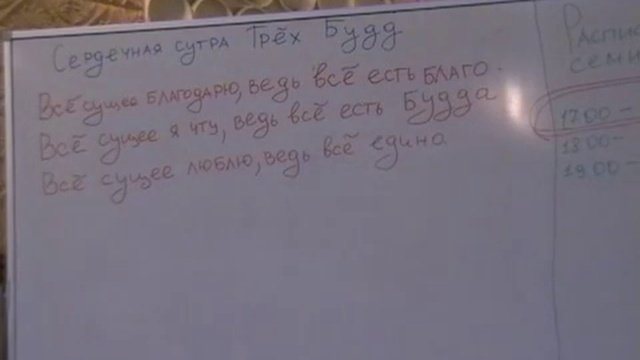 Сердечная сутра Трёх Будд
Всё сущее благодарю, ведь всё есть благо.
Всё сущее я чту, ведь всё есть Будда
Всё сущее люблю, ведь всё едино
17 00 –
18 00 –
19 00 –